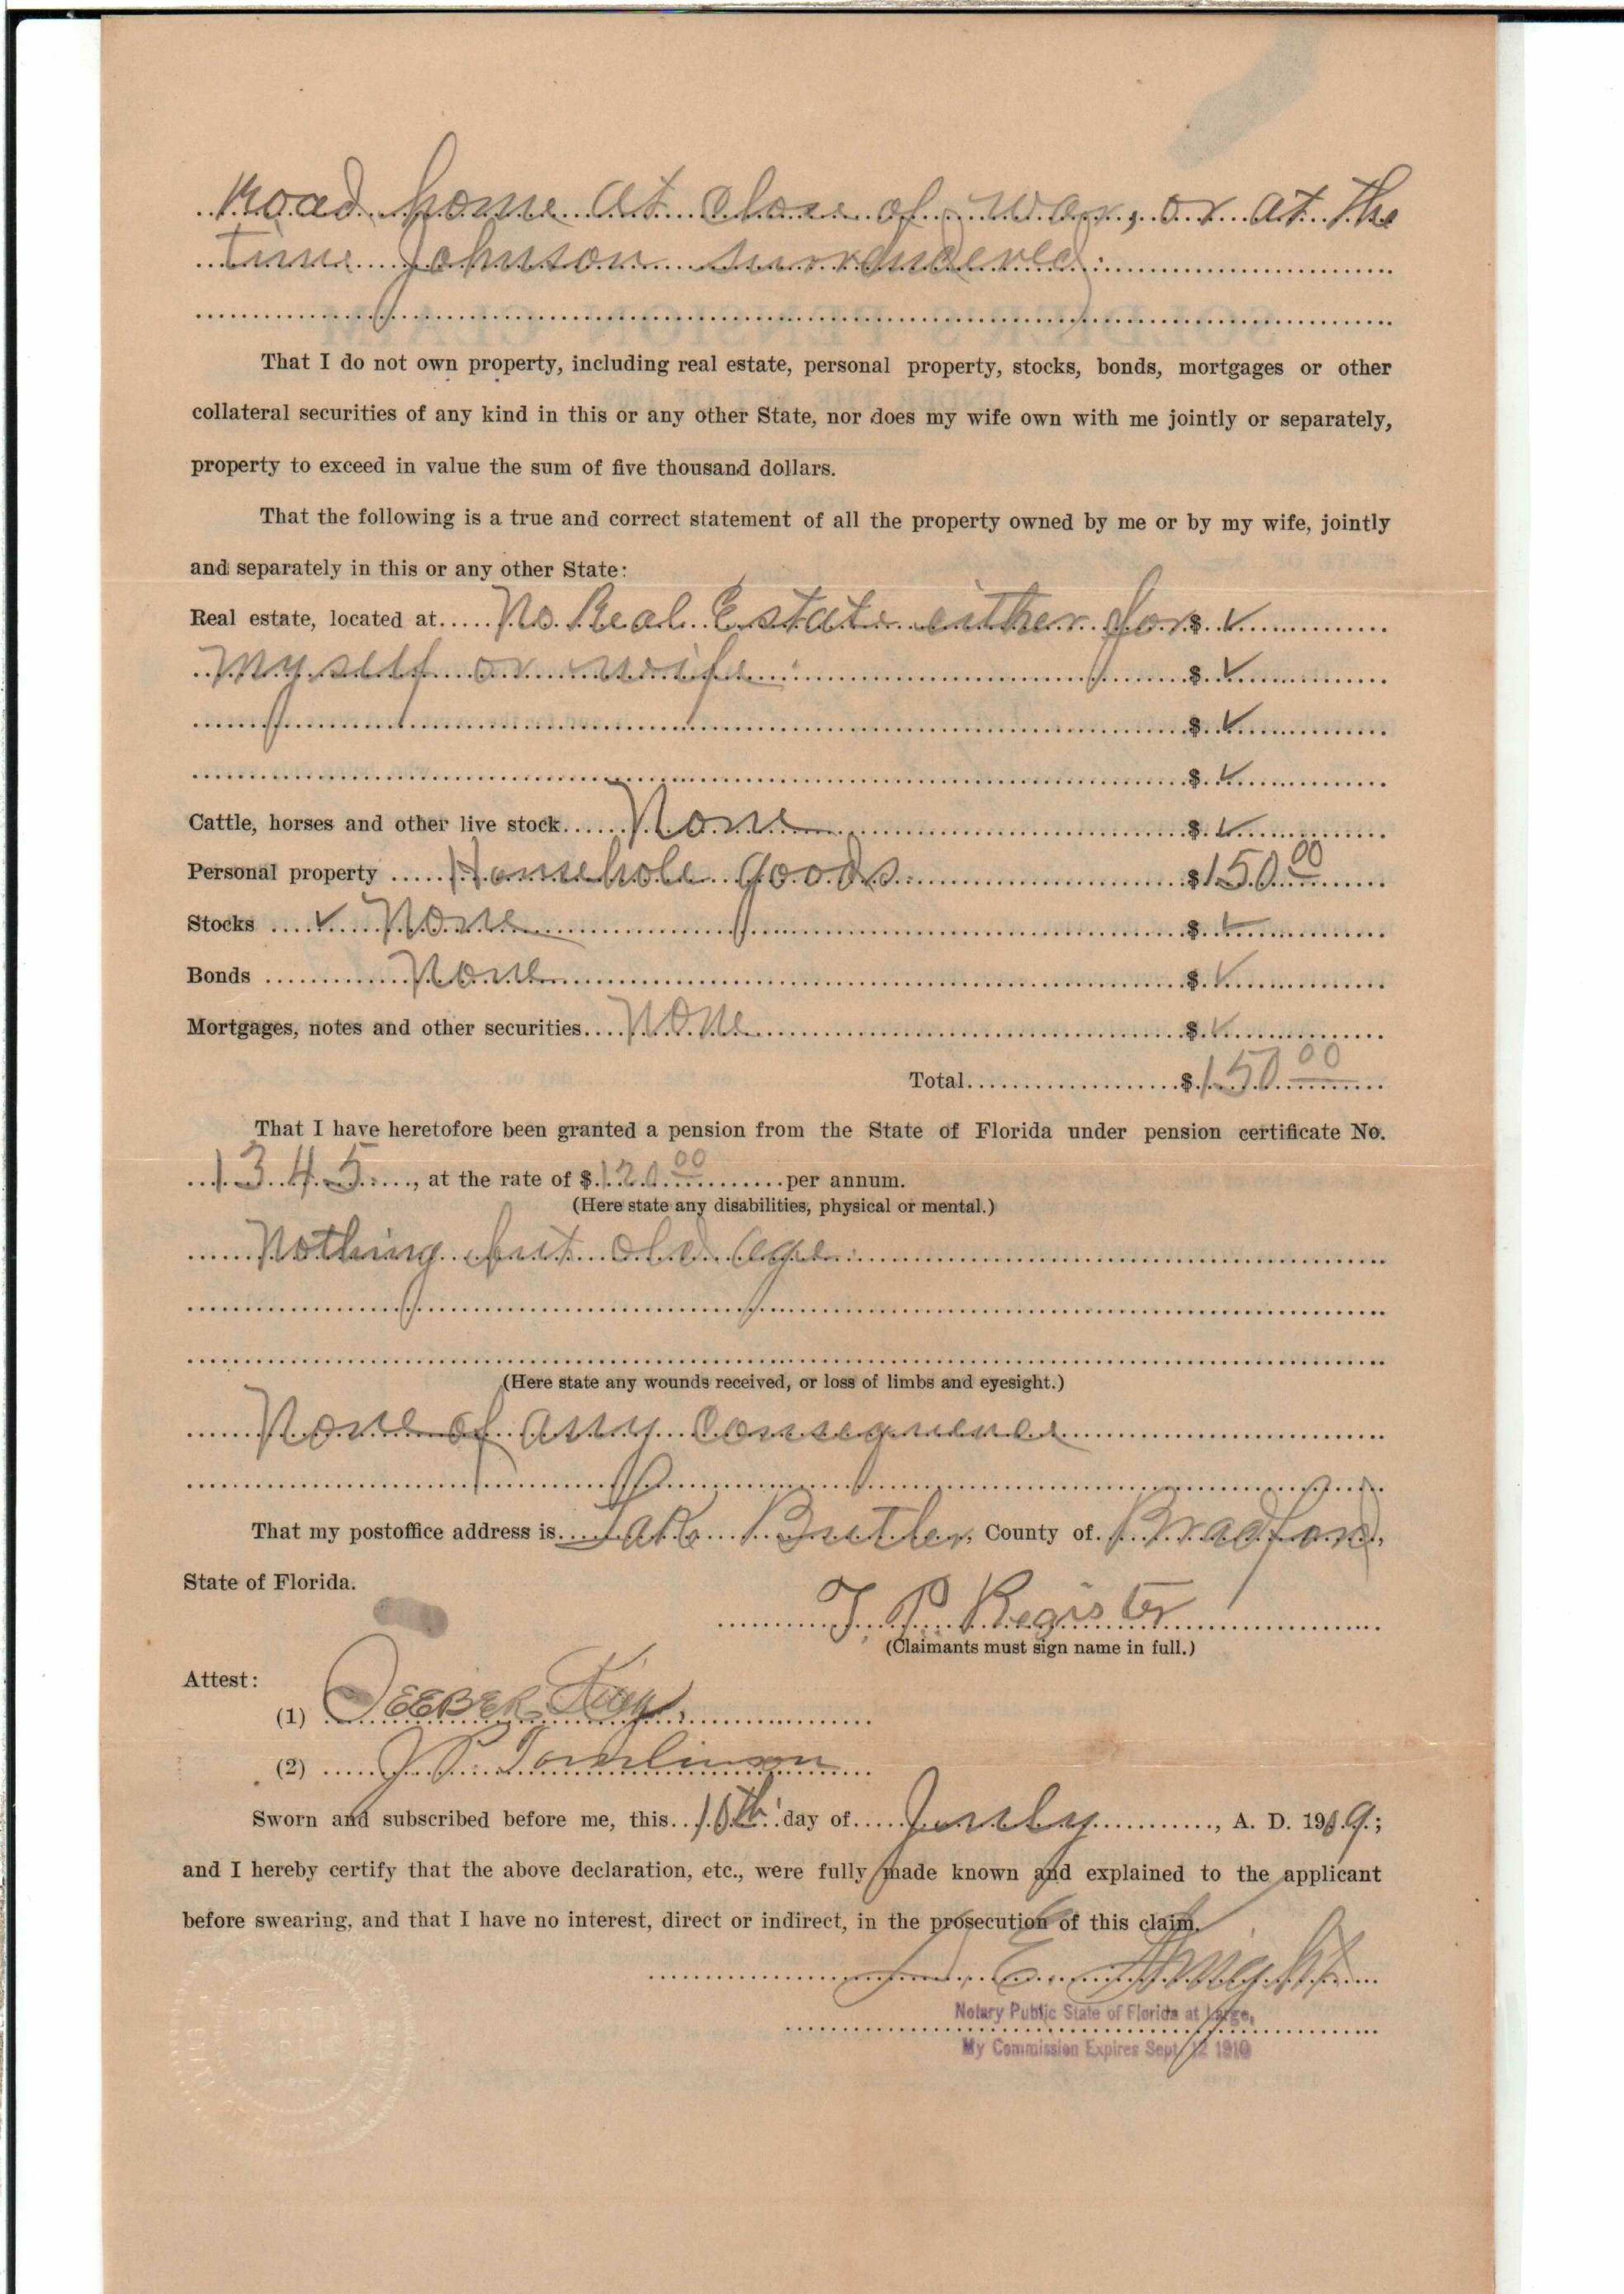 Road home at close of war, or at the
time Johnson surrendered
That I do not own property, including real estate, personal property, stocks, bonds, mortgages or other
collateral securities of any kind in this or any other State, nor does my wife own with me jointly or separately,
property to exceed in value the sum of five thousand dollars.
That the following is a true and correct statement of all the property owned by me or by my wife, jointly
and separately in this or any other State:
Real estate, located at No Real Estate either for $ ✓
myself or wife $ ✓
$ ✓
$ ✓
Cattle, horses and other live stock None $ ✓
Personal property Household goods $150.00
Stocks ✓ None $ ✓
Bonds None $ ✓
Mortgages, notes and other securities None $ ✓
Total $150.00
That I have heretofore been granted a pension from the State of Florida under pension certificate No.
1345, at the rate of $120.00 per annum.
(Here state any disabilities, physical or mental.)
Nothing but old age
(Here state any wounds received, or loss of limbs and eyesight.)
None of any consequence
That my postoffice address is Lake Butler, County of Bradford,
State of Florida.
T. P. Register
(Claimants must sign name in full.)
Attest:
(1)
(2) J. P. Tomlinson
Sworn and subscribed before me, this 10th day of July, A. D. 1909;
and I hereby certify that the above declaration, etc., were fully made known and explained to the applicant
before swearing, and that I have no interest, direct or indirect, in the prosecution of this claim.
Notary Public State of Florida at Large,
My Commission Expires Sept 12 1910